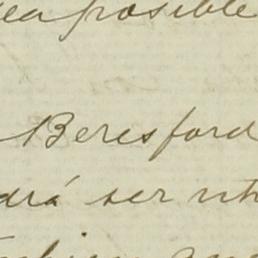 sea posible
Beresford
drá ser uti